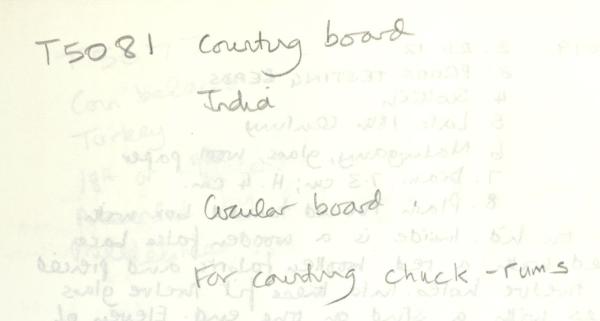 T5081 Counting board
India
Circular board.
For counting chuck-rums